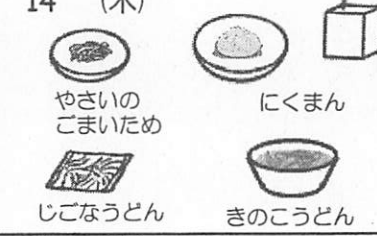 14 (木)
やさいの
ごまいため
にくまん
じごなうどん
きのこうどん